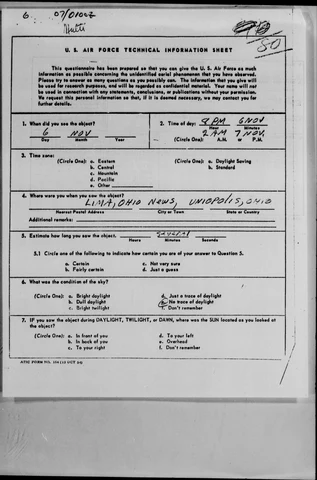 6. 07/0100Z
Multi
80
U. S. AIR FORCE TECHNICAL INFORMATION SHEET
This questionnaire has been prepared so that you can give the U. S. Air Force as much
information as possible concerning the unidentified aerial phenomenon that you have observed.
Please try to answer as many questions as you possibly can. The information that you give will
be used for research purposes, and will be regarded as confidential material. Your name will not
be used in connection with any statements, conclusions, or publications without your permission.
We request this personal information so that, if it is deemed necessary, we may contact you for
further details.
1. When did you see the object?
6 NOV
Day Month Year
2. Time of day: 8 PM 6 NOV
Hour Minutes
2 AM 7 NOV.
(Circle One): A.M. or P.M.
3. Time zone:
(Circle One): a. Eastern
b. Central
c. Mountain
d. Pacific
e. Other
(Circle One): a. Daylight Saving
b. Standard
4. Where were you when you saw the object?
LIMA, OHIO NEWS, UNIOPOLIS, OHIO
Nearest Postal Address City or Town State or Country
Additional remarks:
5. Estimate how long you saw the object. several
Hours Minutes Seconds
5.1 Circle one of the following to indicate how certain you are of your answer to Question 5.
a. Certain
b. Fairly certain
c. Not very sure
d. Just a guess
6. What was the condition of the sky?
(Circle One): a. Bright daylight
b. Dull daylight
c. Bright twilight
d. Just a trace of daylight
e. No trace of daylight
f. Don't remember
7. IF you saw the object during DAYLIGHT, TWILIGHT, or DAWN, where was the SUN located as you looked at
the object?
(Circle One): a. In front of you
b. In back of you
c. To your right
d. To your left
e. Overhead
f. Don't remember
ATIC FORM NO. 164 (13 OCT 54)